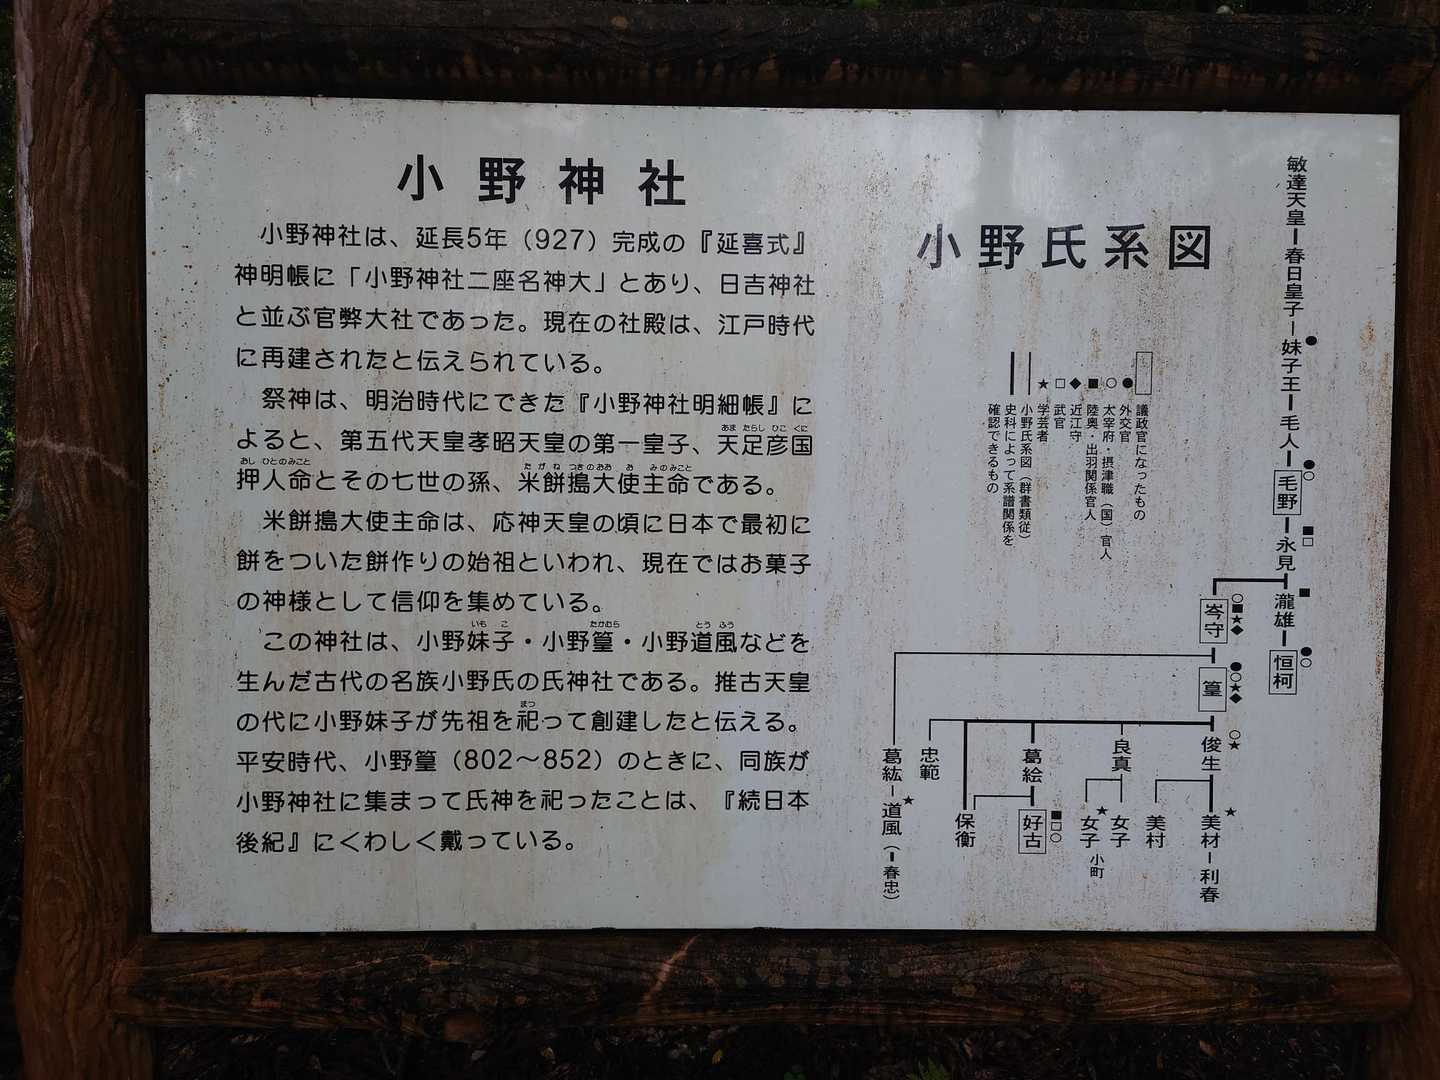 小野神社
小野神社は、延長5年（927）完成の『延喜式』
神明帳に「小野神社二座名神大」とあり、日吉神社
と並ぶ官弊大社であった。現在の社殿は、江戸時代
に再建されたと伝えられている。
祭神は、明治時代にできた『小野神社明細帳』に
よると、第五代天皇孝昭天皇の第一皇子、天足彦国
押人命とその七世の孫、米餅搗大使主命である。
米餅搗大使主命は、応神天皇の頃に日本で最初に
餅をついた餅作りの始祖といわれ、現在ではお菓子
の神様として信仰を集めている。
この神社は、小野妹子・小野篁・小野道風などを
生んだ古代の名族小野氏の氏神社である。推古天皇
の代に小野妹子が先祖を祀って創建したと伝える。
平安時代、小野篁（802〜852）のときに、同族が
小野神社に集まって氏神を祀ったことは、『続日本
後紀』にくわしく戴っている。
小野氏系図
議政官になったもの
●外交官
○太宰府・摂津職（国）官人
■陸奥・出羽関係官人
◆近江守
□武官
★学芸者
小野氏系図（群書類従）
史科によって系譜関係を
確認できるもの
敏達天皇ー春日皇子ー妹子王ー毛人ー毛野ー永見
瀧雄ー恒柯
岑守
篁
俊生
美材ー利春
美村
良真
女子
女子小町
葛絵
好古
保衡
忠範
葛絃ー道風（ー春忠）